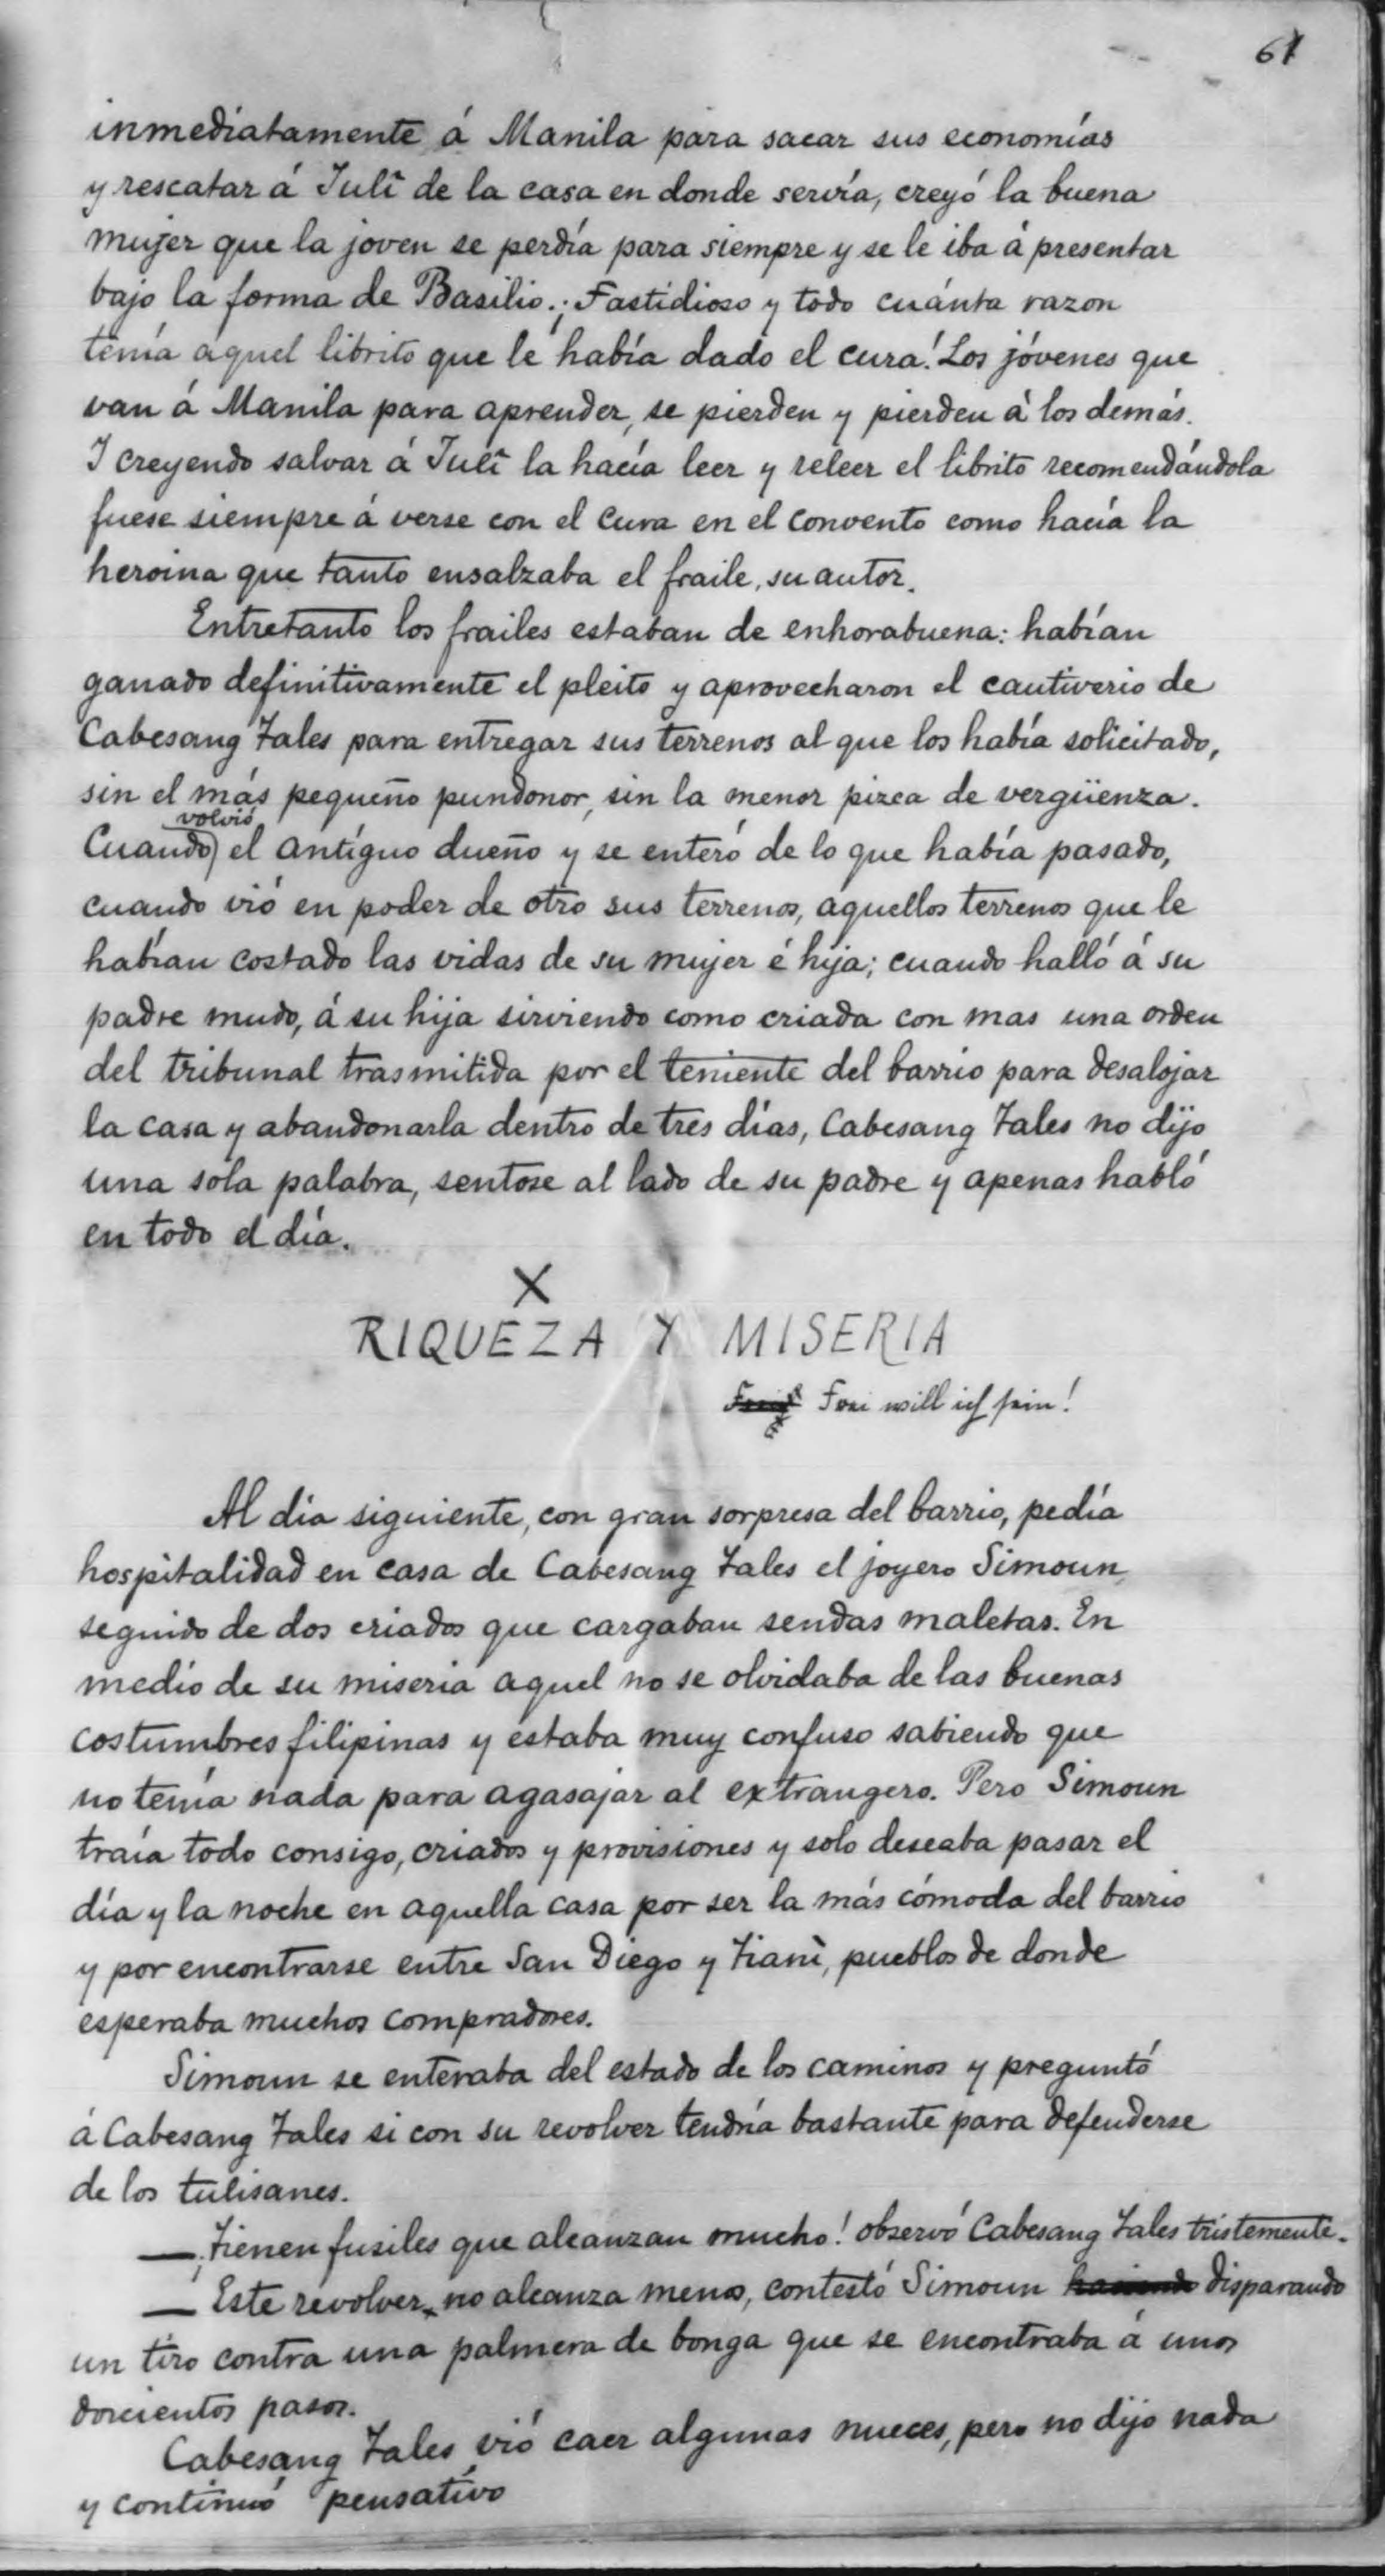 61
inmediatamente á Manila para sacar sus economías
y rescatar á Julî de la casa en donde servía, creyó la buena
mujer que la joven se perdía para siempre y se le iba á presentar
bajo la forma de Basilio. ¡Fastidioso y todo cuánta razon
tenía aquel librito que le había dado el cura! Los jóvenes que
van á Manila para aprender, se pierden y pierden á los demás.
I creyendo salvar á Julî la hacía leer y releer el librito recomendándola
fuese siempre á verse con el cura en el convento como hacía la
heroina que tanto ensalzaba el fraile, su autor.
Entretanto los frailes estaban de enhorabuena: habían
ganado definitivamente el pleito y aprovecharon el cautiverio de
Cabesang Tales para entregar sus terrenos al que los había solicitado,
sin el más pequeño pundonor, sin la menor pizca de vergüenza.
volvió
Cuando el antíguo dueño y se enteró de lo que había pasado,
cuando vió en poder de otro sus terrenos, aquellos terrenos que le
habían costado las vidas de su mujer é hija; cuando halló á su
padre mudo, á su hija sirviendo como criada con mas una orden
del tribunal trasmitida por el teniente del barrio para desalojar
la casa y abandonarla dentro de tres días, Cabesang Tales no dijo
una sola palabra, sentose al lado de su padre y apenas habló
en todo el día.
X
RIQUEZA Y MISERIA
Frei will ich sein!
Al día siguiente, con gran sorpresa del barrio, pedía
hospitalidad en casa de Cabesang Tales el joyero Simoun
seguido de dos criados que cargaban sendas maletas. En
medio de su miseria aquel no se olvidaba de las buenas
costumbres filipinas y estaba muy confuso sabiendo que
no tenía nada para agasajar al extrangero. Pero Simoun
traía todo consigo, criados y provisiones y solo deseaba pasar el
día y la noche en aquella casa por ser la más cómoda del barrio
y por encontrarse entre San Diego y Tianì, pueblos de donde
esperaba muchos compradores.
Simoun se enteraba del estado de los caminos y preguntó
á Cabesang Tales si con su revolver tendría bastante para defenderse
de los tulisanes.
— ¡Tienen fusiles que alcanzan mucho! observó Cabesang Tales tristemente.
— Este revolver no alcanza menos, contestó Simoun disparando
un tiro contra una palmera de bonga que se encontraba á unos
doscientos pasos.
Cabesang Tales vió caer algunas nueces, pero no dijo nada
y continuó pensativo